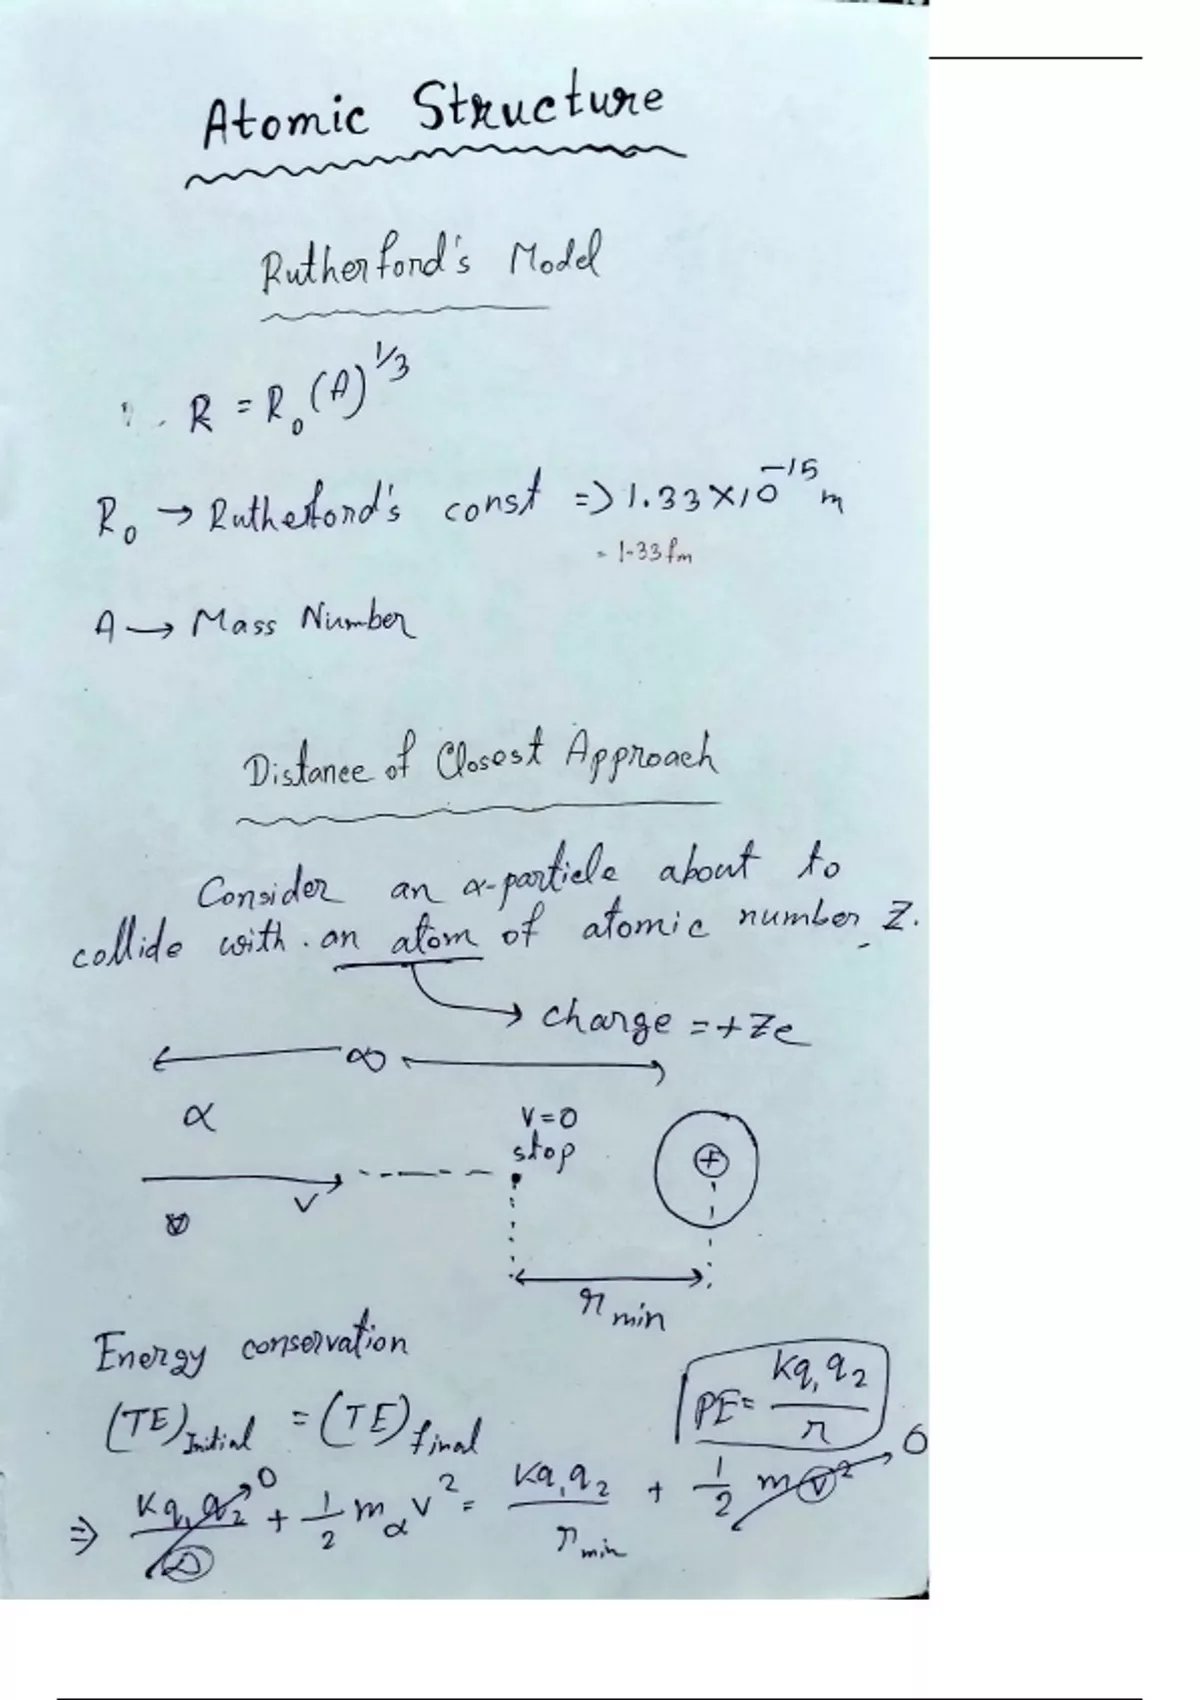 Atomic Structure
Rutherford's Model
R = R₀ (A)^1/3
R₀ → Rutherford's const => 1.33 × 10^-15 m
= 1.33 fm
A → Mass Number
Distance of Closest Approach
Consider an α-particle about to
collide with an atom of atomic number Z.
charge = + Ze
∞
α
v=0
stop
+
v
r min
Energy conservation
PE = kq₁q₂/r
(TE)Initial = (TE)final
=> kq₁q₂/∞ → 0 + 1/2 mα v² = kq₁q₂/r min + 1/2 mv² → 0